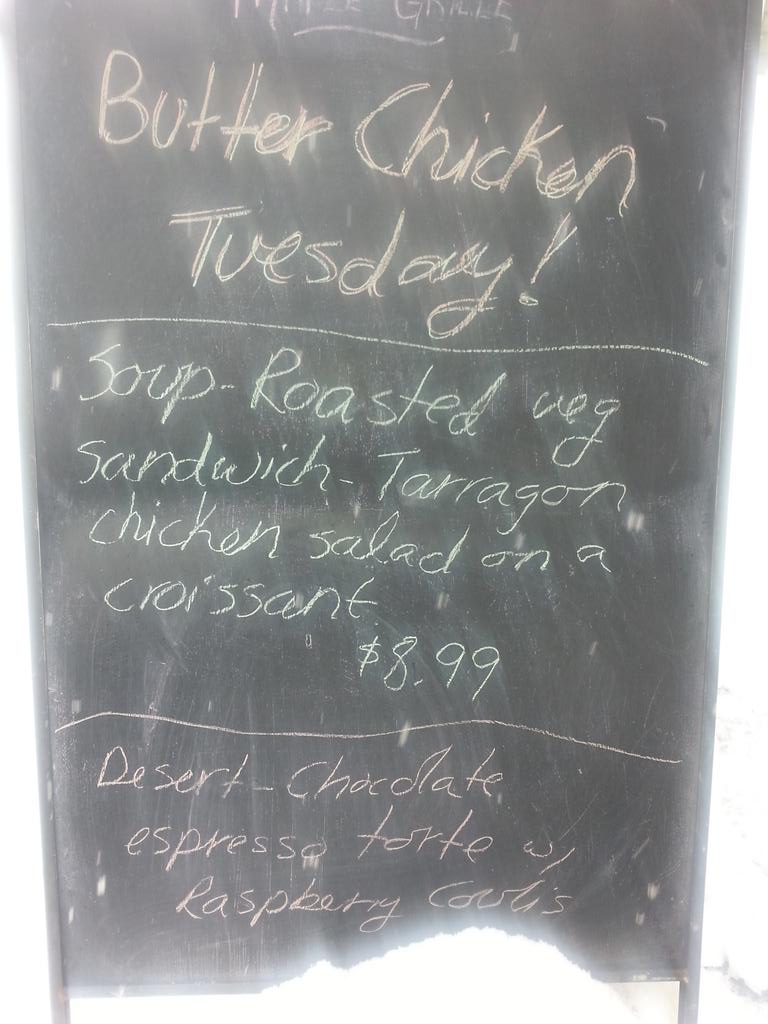 Grille
Butter Chicken
Tuesday!
Soup-Roasted veg
Sandwich-Tarragon
chicken salad on a
croissant
$8.99
Desert-Chocolate
espresso torte w/
Raspberry Coulis